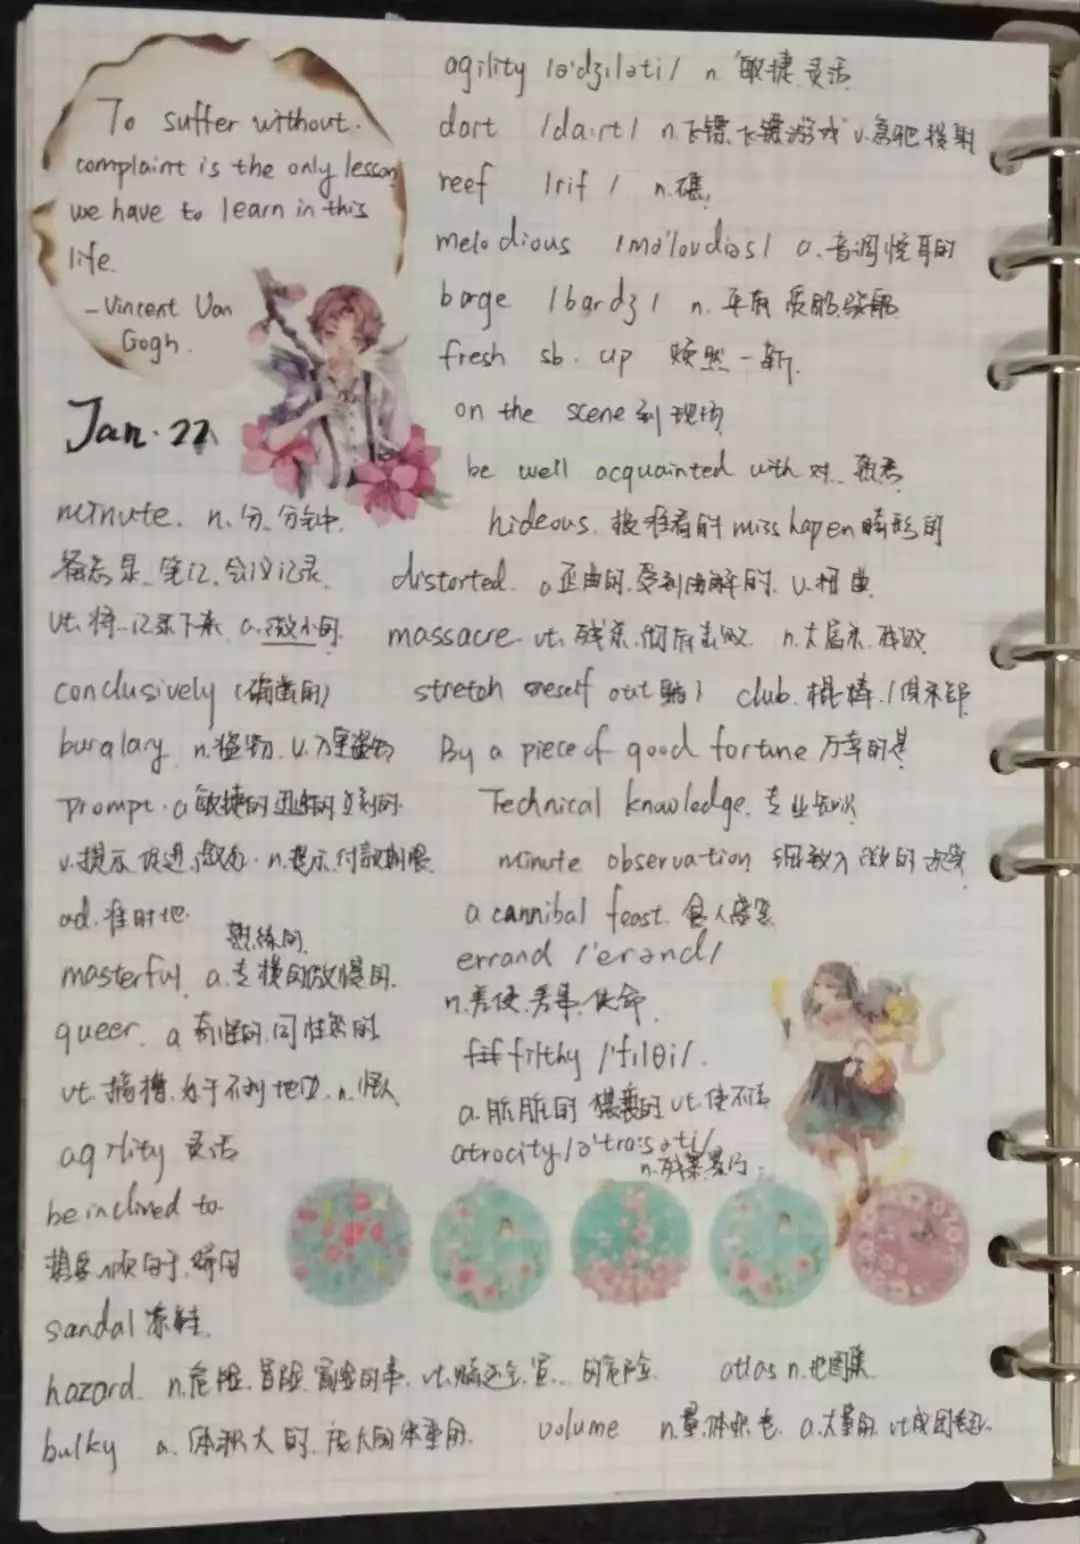 To suffer without
complaint is the only lesson
we have to learn in this
life.
-Vincent Van
Gogh.
Jan.22
minute. n.分.分钟.
备忘录.笔记.会议记录.
vt.将…记录下来 a.微小的.
conclusively (确凿的)
burglary n.盗窃.
prompt. a敏捷的 迅速的 立刻的.
v.提示 促进. n.提示.付款期限
ad.准时地
熟练的.
masterful a.专横的 傲慢的.
queer. a 奇怪的.同性恋的
vt.搞糟.处于不利地位.n.怪人
agility 灵活
be inclined to.
sandal 凉鞋.
hazard. n.危险.冒险.冒险的事. vt. 的危险.
bulky a.体积大的.庞大的
agility /ə'dʒɪləti/ n.敏捷.灵活
dart /dɑ:rt/ n.飞镖.飞镖游戏 v. 投射
reef /rif/ n.礁.
melodious /mə'loʊdiəs/ a.音调悦耳的
barge /bardʒ/ n.平底 驳船
fresh sb. up 焕然一新.
on the scene 到现场
be well acquainted with 对…熟悉
hideous. 极难看的 misshapen 畸形的
distorted. a歪曲的.受到曲解的. v.扭曲.
massacre vt. n.大屠杀.
stretch oneself out 躺下 club.棍棒./俱乐部
By a piece of good fortune 万幸的是
Technical knowledge.专业知识
minute observation 细致入微的
a cannibal feast.食人盛宴
errand /'erənd/
n.差使.差事.使命.
filthy /'fɪlθi/.
a.肮脏的 猥亵的 vt.使不洁
atrocity /ə'trɑ:səti/
n.残暴.暴行.
atlas n.地图集
volume n.量.体积.卷 a.大量的.